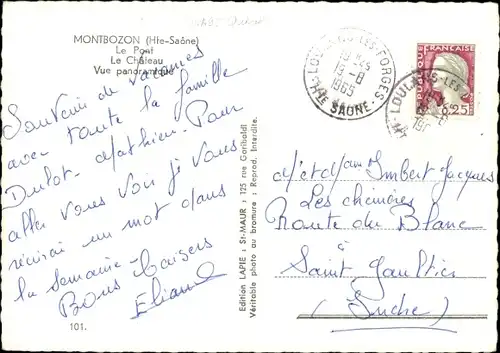 MONTBOZON (Hte-Saône)
Le Pont
Le Château
Vue panoramique
Souvenir de vacances
avec toute la famille
Dulot - Mathieu - Pour
aller vous voir je vous
récrirai un mot dans
la semaine -
Bons baisers
Eliane
101.
Edition LAPIE ; St-MAUR ; 125 rue Garibaldi
Véritable photo au bromure ; Reprod. Interdite.
LOULANS-LES-FORGES
18 H 45
13-8
1965
Hte SAONE
FRANÇAISE
0,25
LOULANS-LES-
Mr et Mme Imbert Jacques
Les chemières
Route du Blanc
à
Saint Gaultier
(Indre)